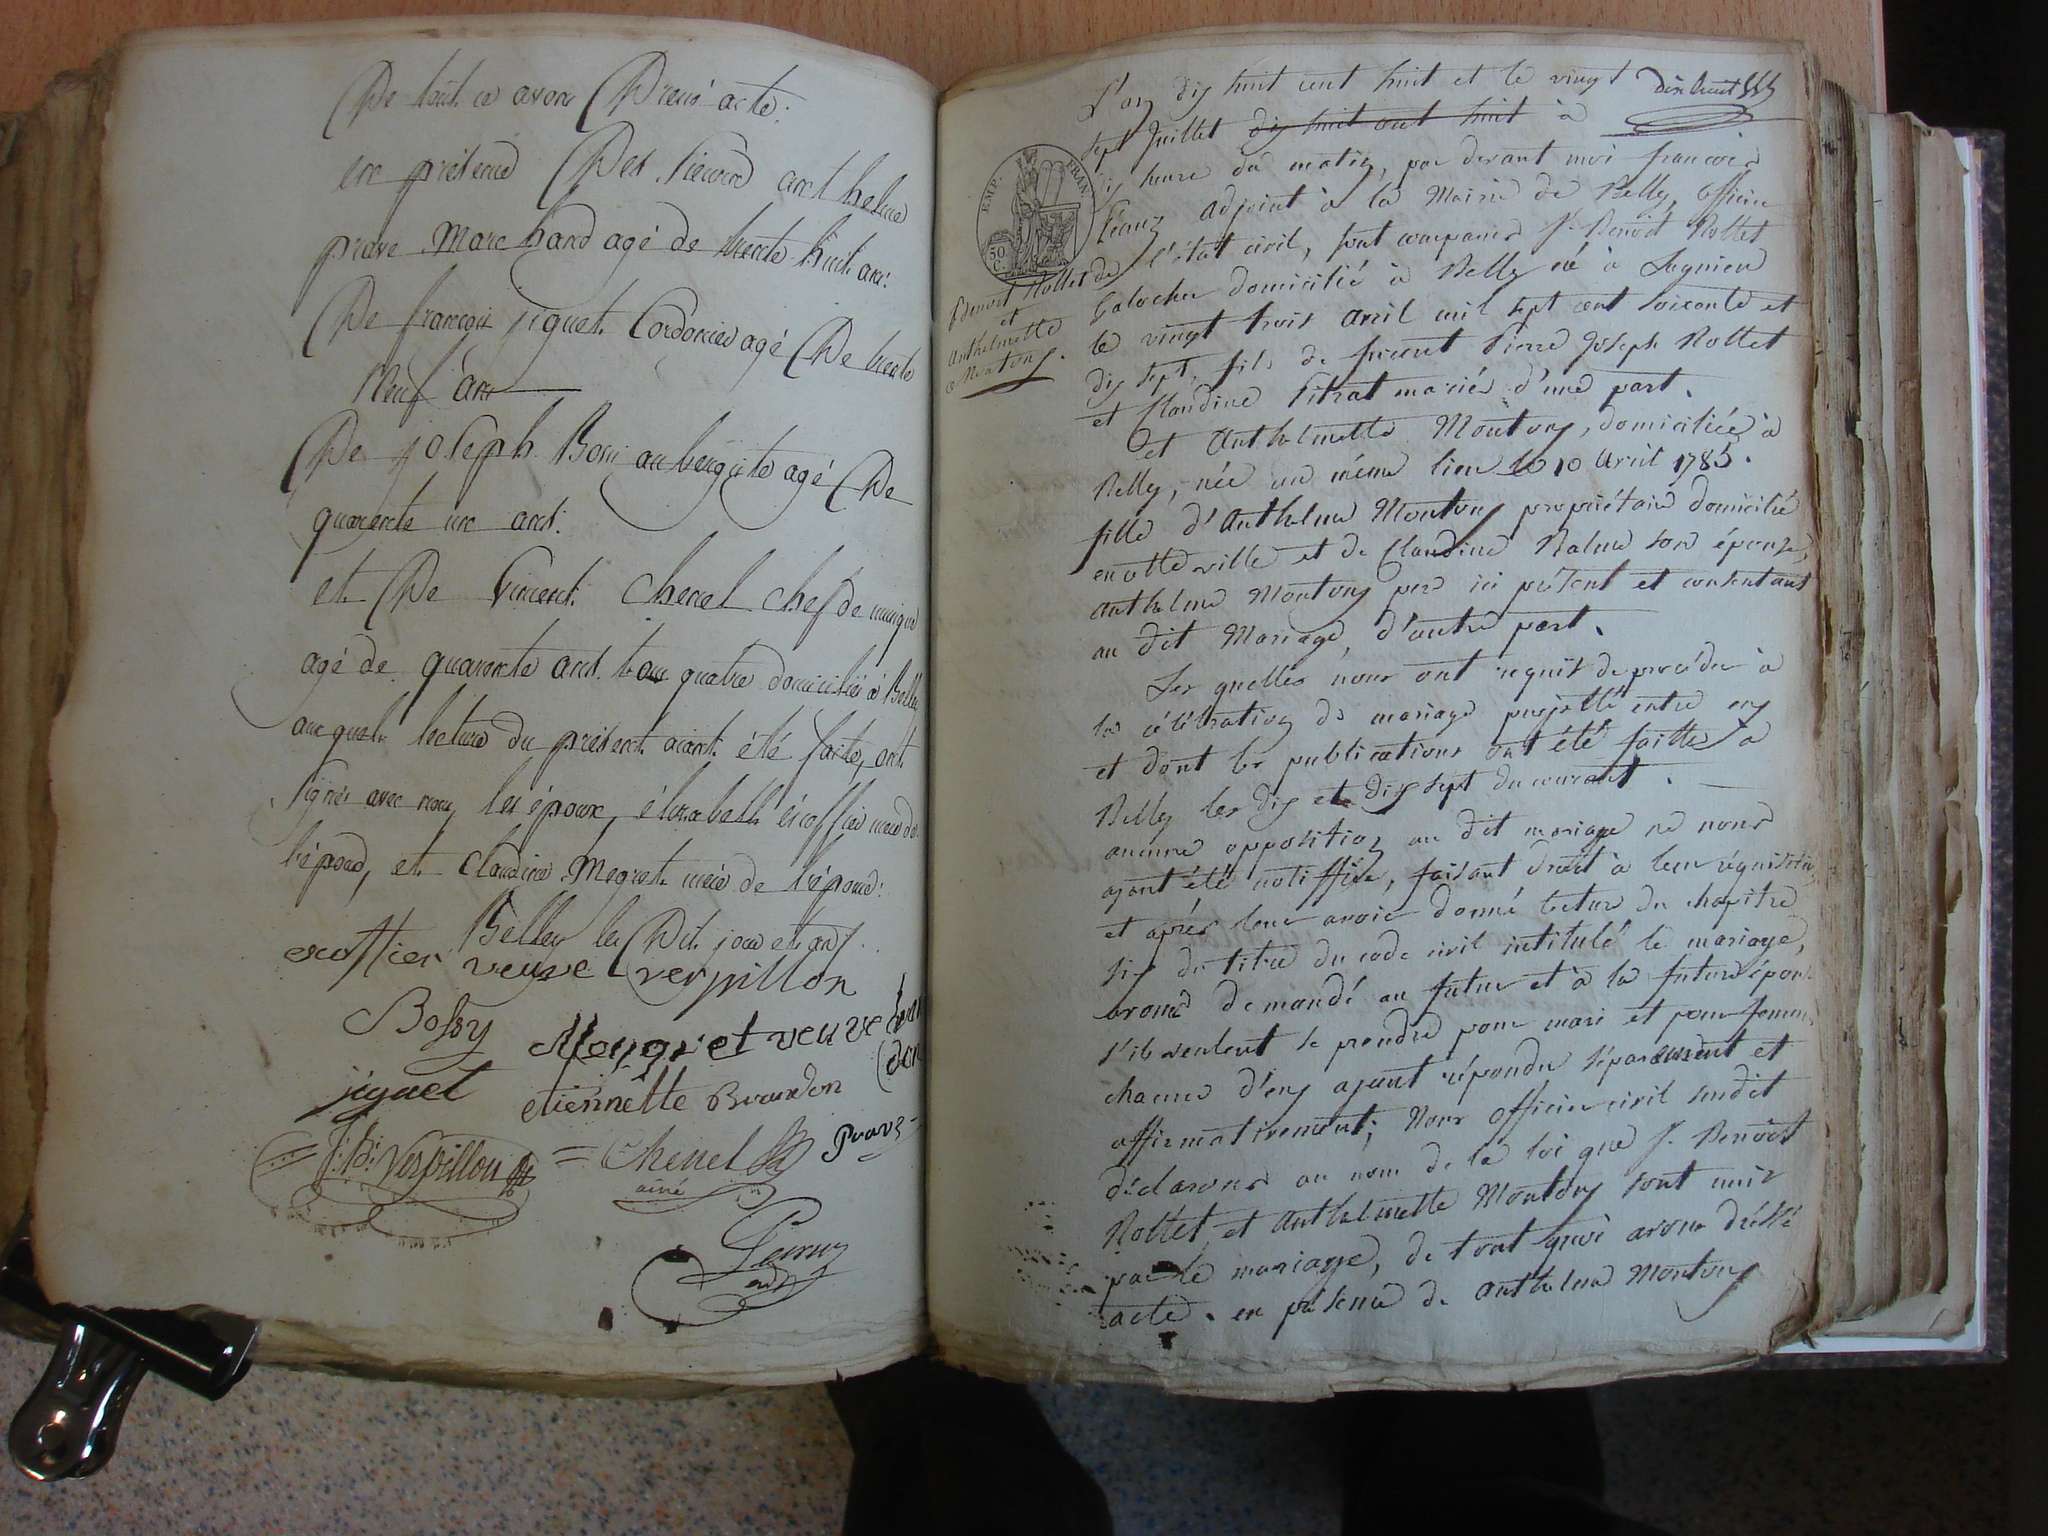 De tout ce avon Dressé acte.
en présence Des sieurs anthelme
prave Marchand agé de trente huit ans.
De françois jiguet Cordonier agé De trente
Neuf ans
De joseph Bossy aubergiste agé De
quarente un ans.
et De Vincent Chenel chef de musique
agé de quarente ans. tous quatre domiciliés à Belley
auxquels lecture du présent aiant été faite, ont
signés avec nous les époux, élizabeth éscoffier mere de
l'époux, et Claudine Megret mère de l'épouse.
Belley les Dit jour et an.
escoffier veuve verpillon
Bossy Meygret veuve
jiguet etiennette Bourdon
J. B. Verpillon = Chenel Prave
ainé
Peysson
adjt
L'an dix huit cent huit et le vingt dix huit
sept Juillet dix huit cent huit à
dix heure du matin, par devant moi françois
adjoint à la Mairie de Belley, officier
de l'état civil, sont comparus Sr. Benoit Rollet
Galocher domicilié à Belley né à Lagnieu
le vingt trois avril mil sept cent soixante et
dix sept, fils de feu Pierre Joseph Rollet
et Claudine Pitrat mariés d'une part.
et Anthelmette Montony, domiciliée à
Belley, née au même lieu le 10 Avril 1785.
fille d'Anthelme Montony propriétaire domicilié
en cette ville et de Claudine Balme son épouse,
anthelme Montony pere ici présent et consentant
au dit Mariage, d'autre part.
Les quelles nous ont requit de procéder à
la célébration de mariage projetté entre eux
et dont les publications ont été faittes à
Belley les dix et dix sept du courant.
aucune opposition au dit mariage ne nous
ayant été notiffiée, faisant droit à leur réquisition,
et après leur avoir donné lecture du chapitre
six du titre du code civil intitulé le mariage,
avons demandé au futur et à la future épouse
s'ils veulent se prendre pour mari et pour femme,
chacun d'eux ayant répondu séparément et
affirmativement; Nous officier civil susdit
déclarons au nom de la loi que Sr. Benoit
Rollet, et Anthelmette Montony sont unis
par le mariage, de tout quoi avons dréssé
acte. en présence de Anthelme Montony
EMP. FRAN.
50 C.
Benoit Rollet
et
Anthelmette
Montony.